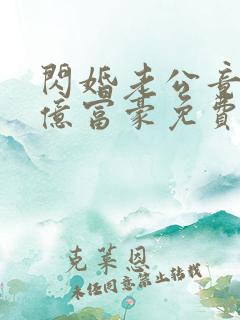 閃婚老公竟
億富豪免費
克萊恩
未經同意禁止轉載